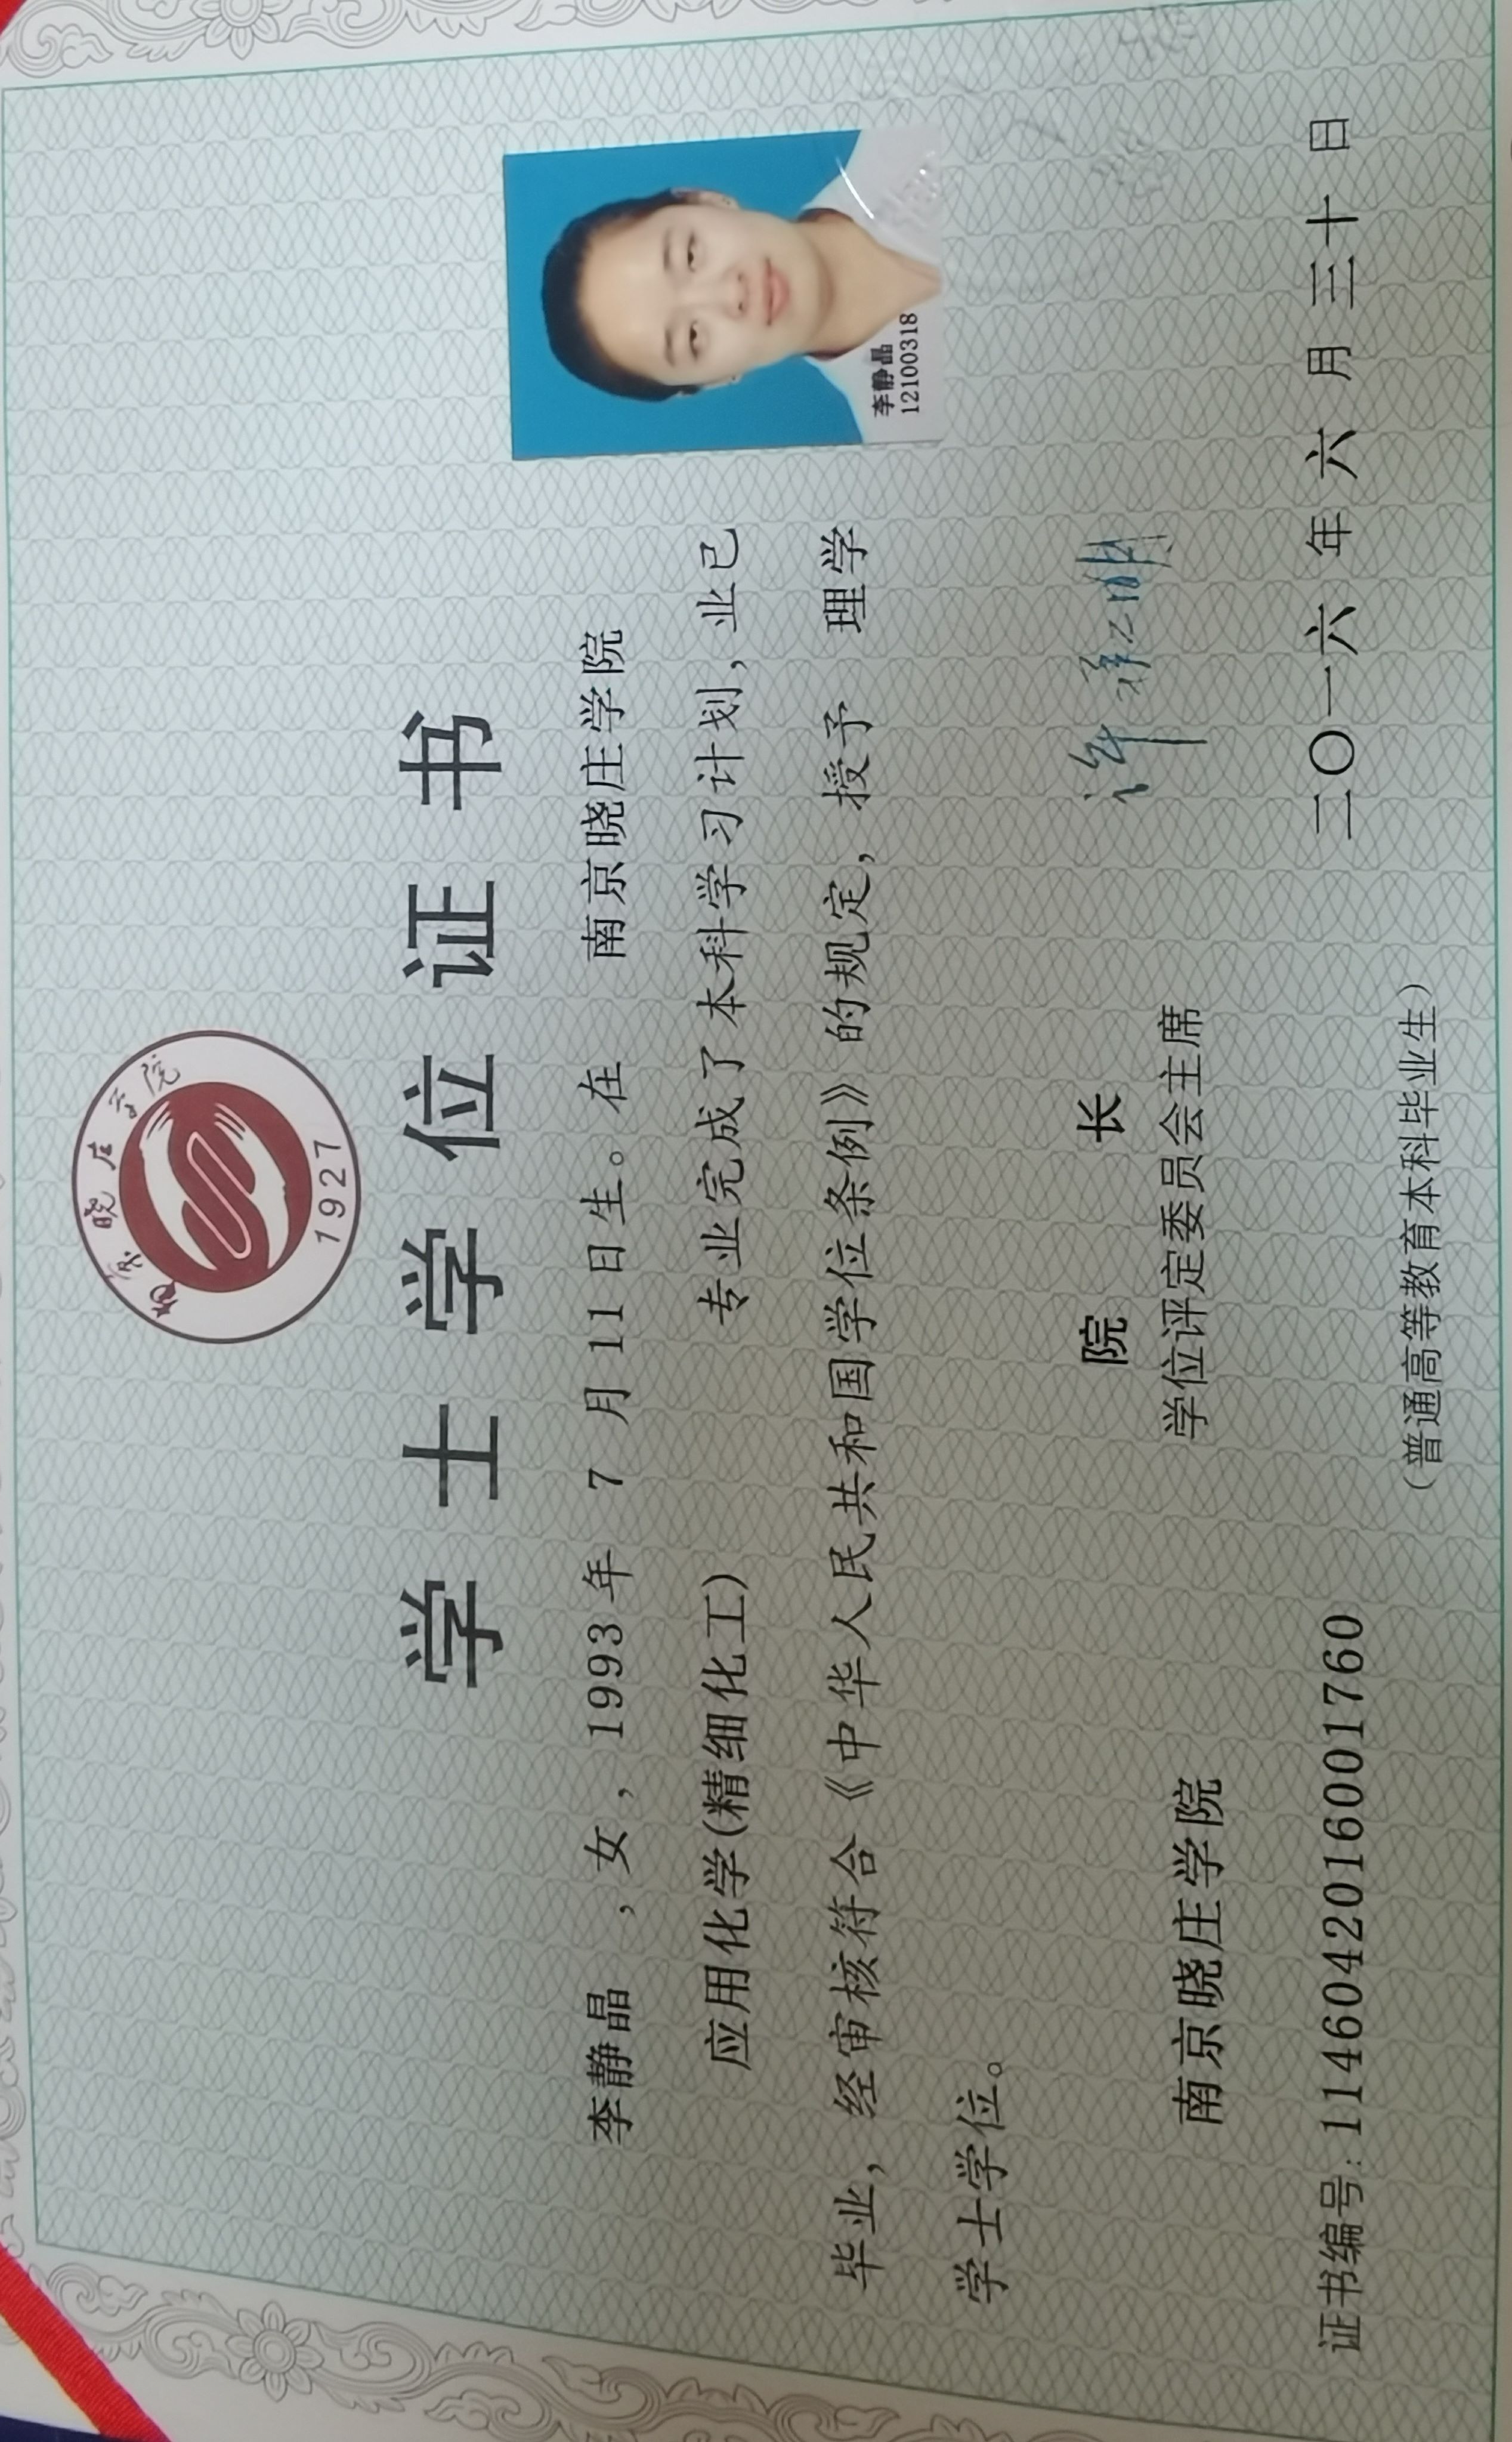 南京晓庄学院
1927
学士学位证书
李静晶 ,女, 1993年 7 月 11 日生。在 南京晓庄学院
应用化学(精细化工) 专业完成了本科学习计划,业已
毕业,经审核符合《中华人民共和国学位条例》的规定,授予 理学
学士学位。
李静晶
12100318
院 长
南京晓庄学院 学位评定委员会主席
证书编号: 1146042016001760 二〇一六年六月三十日
(普通高等教育本科毕业生)